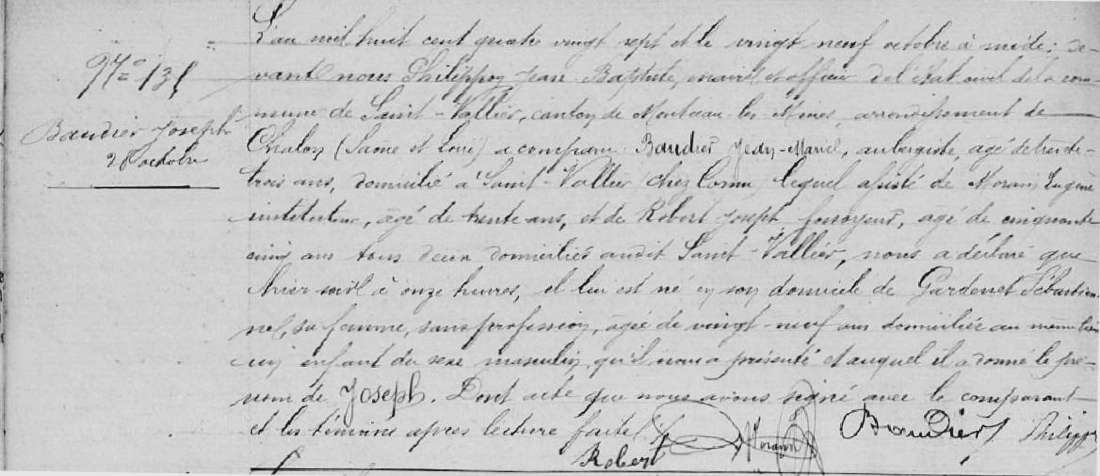 L'an mil huit cent quatre vingt sept et le vingt neuf octobre à midi; de-
N° 131
vant nous Philippon Jean Baptiste, maire et officier de l'état civil de la com-
mune de Saint-Vallier, canton de Montceau-les-Mines, arrondissement de
Baudier Joseph
28 octobre
Chalon (Saone et Loire) a comparu Baudier Jean-Marie, aubergiste, agé de trente-
trois ans, domicilié à Saint-Vallier lequel assisté de Morann Eugène
instituteur, agé de trente ans, et de Robert Joseph fossoyeur, agé de cinquante
cinq ans tous deux domiciliés audit Saint-Vallier, nous a déclaré que
hier soir à onze heures, il lui est né en son domicile de Gardenet Sébastien-
ne, sa femme, sans profession, agée de vingt-neuf ans domiciliée au même lieu
un enfant du sexe masculin qu'il nous a présenté et auquel il a donné le pré-
nom de Joseph. Dont acte que nous avons signé avec le comparant
et les témoins après lecture faite.
Robert Morann Baudier Philippon